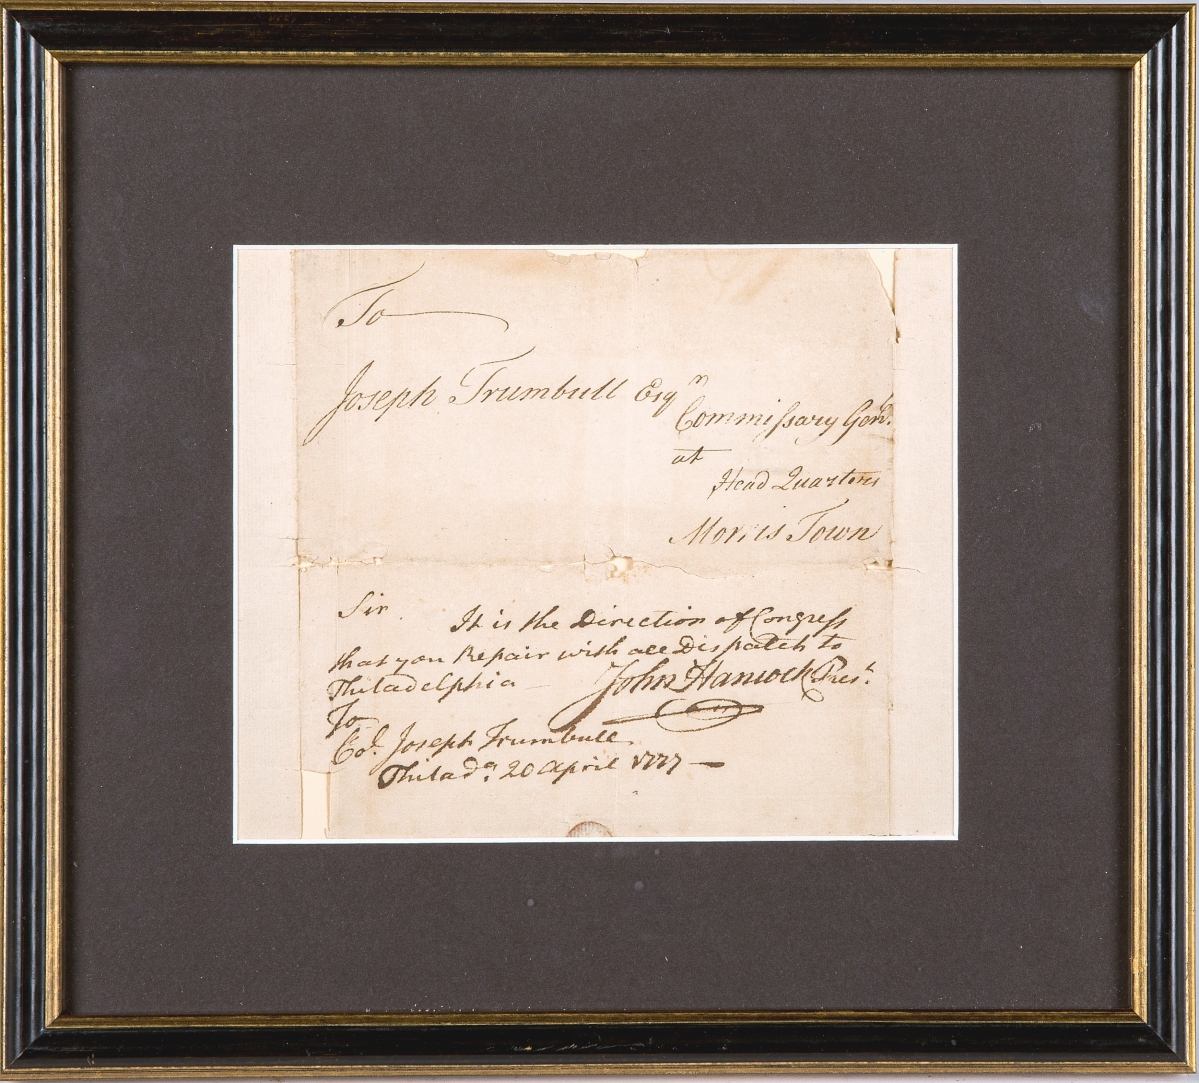 To
Joseph Trumbull Esqr
Commissary Genl.
at
Head Quarters
Morris Town
Sir. It is the Direction of Congress
that you Repair with all Dispatch to
Philadelphia — John Hancock Presit.
To
Col. Joseph Trumbull
Philada. 20 April 1777 —